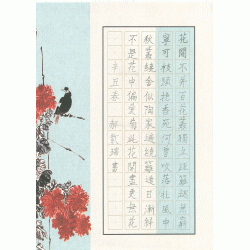 花開不并百花叢獨立疏籬趣未窮
寧可枝頭抱香死何曾吹落北風中
秋叢繞舍似陶家遍繞籬邊日漸斜
不是花中偏愛菊此花開盡更無花
辛丑春